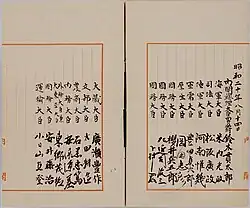 昭和二十年八月十四日
内閣總理大臣男爵鈴木貫太郎
海軍大臣 米内光政
司法大臣 松阪廣政
陸軍大臣 阿南惟幾
軍需大臣
厚生大臣 岡田忠彦
國務大臣 櫻井兵五郎
國務大臣 左近司政三
國務大臣 下村宏
大藏大臣 廣瀬豐作
文部大臣 太田耕造
農商大臣 石黑忠篤
内務大臣 安倍源基
東郷茂徳
國務大臣 安井藤治
運輸大臣 小日山直登